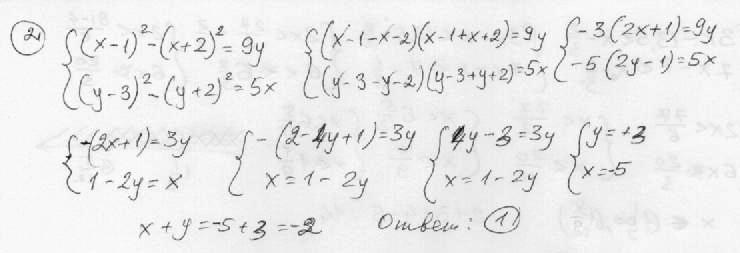 21 { (x-1)²-(x+2)²=9y (y-3)²-(y+2)²=5x { (x-1-x-2)(x-1+x+2)=9y (y-3-y-2)(y-3+y+2)=5x { -3(2x+1)=9y -5(2y-1)=5x
{ -(2x+1)=3y 1-2y=x { -(2-4y+1)=3y x=1-2y { 4y-3=3y x=1-2y { y=+3 x=-5
x+y=-5+3=-2 Ответ: 1